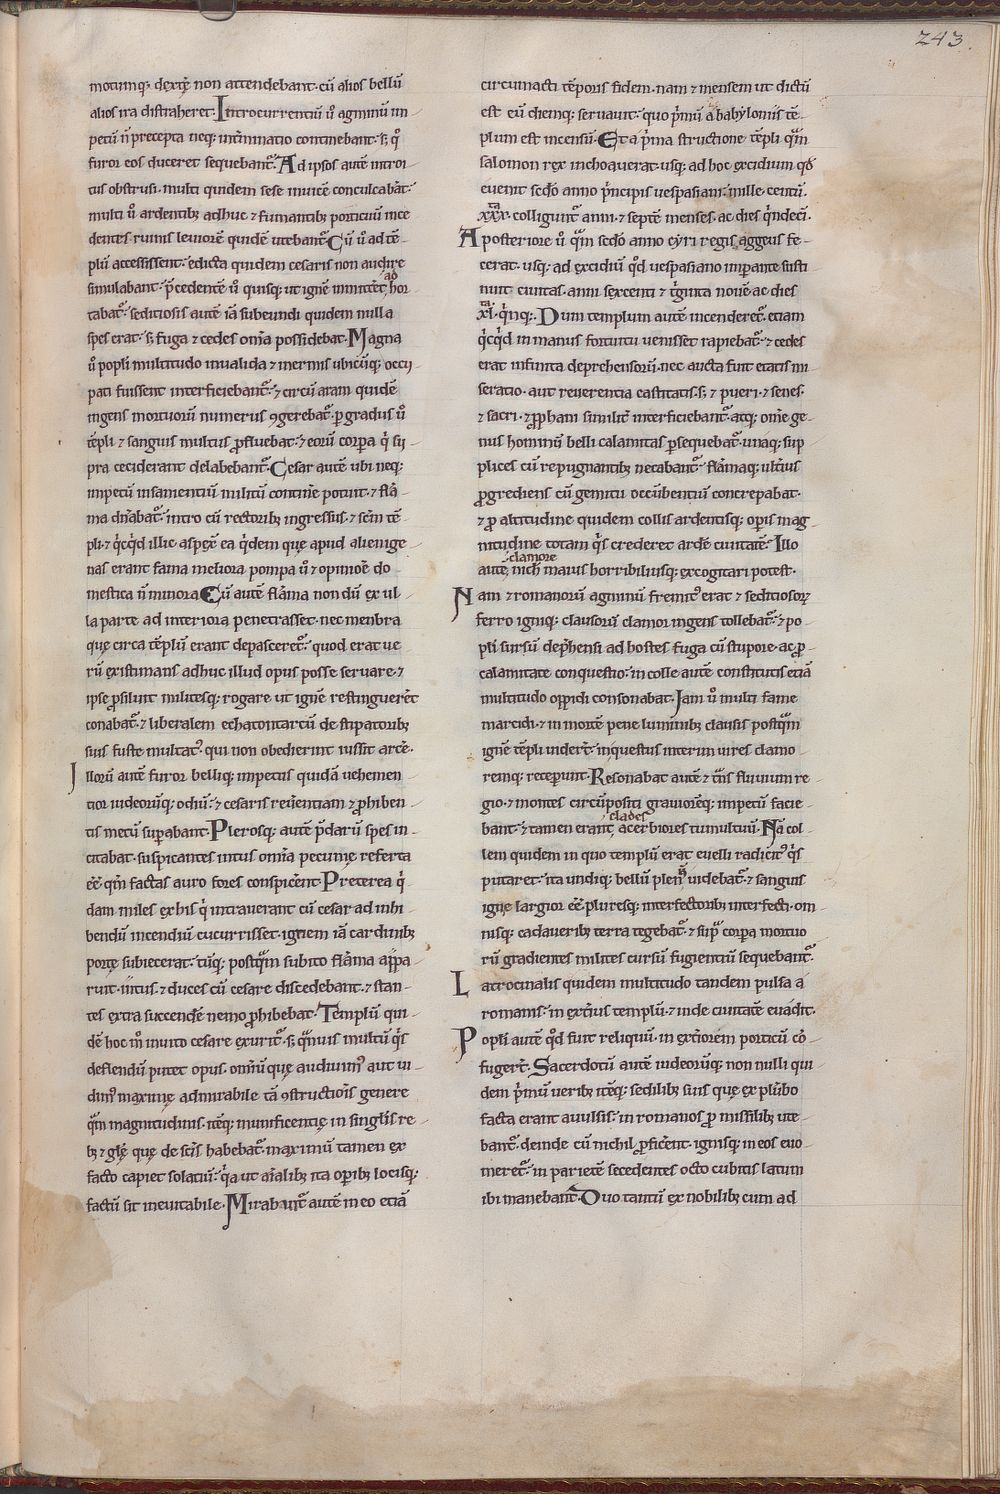 243.
motumq; dextę non attendebant. cũ alios bellũ
alios ira distraheret. Introcurrentiũ ů agminũ im
petũ ñ precepta neq; intminatio continebant. s; q̊
furor eos duceret sequebant᷑. Ad ipsos autẽ introi
tus obstrusi. multi quidem sese inuicẽ conculcabãt.
multi ů ardentib; adhuc ⁊ fumantib; porticuũ ince
dentes ruinis leuiorẽ quidẽ utebant᷑. Cũ ů ad tẽ
plũ accessissent. edicta quidem cesaris non audire
simulabant. p̃cedentẽ ů quisq; ut ignẽ inmittẽt, ad hor
tabat᷑. seditiosis autẽ iã subeundi quidem nulla
spes erat. s; fuga ⁊ cedes om̃ia possidebat. Magna
ů popli multitudo inualida ⁊ inermis ubicũq; occu
pati fuissent interficiebant᷑. ⁊ circũ aram quidẽ
ingens mortuorũ numerus ꝯgerebat᷑. p gradus ů
tẽpli ⁊ sanguis multus ꝓfluebat. ⁊ eorũ corpa q̇ su
pra ceciderant delabebant᷑. Cesar autẽ ubi neq;
impetũ insanientiũ militũ continẽ potuit. ⁊ flã
ma dñabat᷑. intro cũ rectorib; ingressus. ⁊ sc̃m tẽ
pli. ⁊ q̇cq̇d illic aspexẽ ea q̇dem quę apud alienige
nas erant fama meliora pompa ů ⁊ opinioẽ do
mestica ñ minora. Cũ autẽ flãma non dũ ex ul
la parte ad interiora penetrasset. nec menbra
quę circa tẽplũ erant depasceret᷑. quod erat ue
rũ existimans adhuc illud opus posse seruare. ⁊
ipse ꝓsiluit militesq; rogare ut ignẽ restinguerẽt
conabat᷑. ⁊ liberalem echatontarcũ de stipatorib;
suis fuste multat᷒. qui non obedierint iussit arcẽ.
Illorũ autẽ furor belliq; impetus quidã uehemen
tior iudeorũq; odiũ. ⁊ cesaris reuẽentiam ⁊ ꝓhiben
tis metũ supabant. Plerosq; autẽ p̃darũ spes in
citabat. suspicantes intus om̃ia pecunię referta
eẽ. qm̃ factas auro fores conspicẽent. Preterea q̇
dam miles ex his q̇ intrauerant cũ cesar ad inhi
bendũ incendiũ cucurrisset. ignem iã cardinib;
portę subiecerat. tũq; postq̃m subito flãma appa
ruit. intus. ⁊ duces cũ cesare discedebant. ⁊ stan
tes extra succendẽ nemo ꝓhibebat. Templũ qui
dẽ hoc m̊ inuito cesare exurit᷑. s; q̃muis multũ q̇s
deflendũ putet opus. om̃iũ quę audiuim᷒ aut ui
dim᷒ maxime admirabile tã ꝯstructiõis genere
q̃m magnitudinis. itẽq; munificentię in singl̃is re
b; ⁊ glẽ quę de sc̃is habebat᷑. maximũ tamen ex
facto capiet solatiũ. q̇a ut aĩalib; ita opib; locisq;
factũ sit ineuitabile. Mirabunt᷑ autẽ in eo etiã
circumacti tẽporis fidem. nam ⁊ mensem ut dictũ
est eũ diemq; seruauit. quo ṗmũ a babyloniis tẽ
plum est incensũ. Et a ṗma structione tẽpli q̃m
salomon rex inchoauerat. usq; ad hoc excidium qđ
euenit sc̃do anno ṗncipis uespasiani. mille. centũ.
xxx.ta colligunt᷑ anni. ⁊ septẽ menses. ac dies q̇ndeci.
A posteriore ů q̃m sc̃do anno cyri regis aggeus fe
cerat. usq; ad excidiũ q̊d uespasiano imperante susti
nuit ciuitas. anni sexcenti ⁊ t̊ginta nouẽ ac dies
xl.ta q̇nq;. Dum templum autẽ incenderet᷑. etiam
q̇cq̇d in manus fortuitu uenisset rapiebat᷑. ⁊ cedes
erat infinita deprehensorũ. nec aucta fuit etatis mi
seratio. aut reuerentia castitatis. s; ⁊ pueri. ⁊ senes.
⁊ sacri. ⁊ ꝓphani similit̃ interficiebant᷑. atq; om̃e ge
nus hominũ belli calamitas psequebat᷑. unaq; sup
plices cũ repugnantib; necabant᷑. flãmaq; ulterius
ꝓgrediens cũ gemitu occũbentiũ concrepabat.
⁊ ꝓ altitudine quidem collis ardentisq; opis mag
nitudine totam q̇s crederet ardẽ ciuitatẽ. Illo
autẽ, clamore nich̃ maius horribiliusq; excogitari potest.
Nam ⁊ romanorũ agminũ fremit᷒ erat ⁊ seditiosoꝝ
ferro igniq; clausorũ clamor ingens tollebat᷑. ⁊ po
pli sursũ dep̃hensi ad hostes fuga cũ stupore. ac ꝓ
calamitate conquestio. in colle autẽ constitutis etiã
multitudo oppidi consonabat. Iam ů multi fame
marcidi. ⁊ in mortẽ pene luminib; clausis postq̃m
ignẽ tẽpli uidert̃. in questus interim uires clamo
remq; receperunt. Resonabat autẽ ⁊ t̃ns fluuium re
gio. ⁊ montes circũpositi grauiorẽq; impetũ facie
bant. ⁊ tamen erant, clades acerbiores tumultuũ. Nã col
lem quidem in quo templũ erat euelli radicit᷒ q̇s
putaret. ita undiq; bellũ plenus uidebat᷑. ⁊ sanguis
igne largior eẽ. pluresq; interfectorib; interfecti. om
nisq; cadauerib; terra tegebat᷑. ⁊ sup̃ corpa mortuo
rũ gradientes milites cursũ fugientiũ sequebant᷑.
Latrocinalis quidem multitudo tandem pulsa a
romanis. in extius templũ. ⁊ inde ciuitatẽ euadit.
Popli autẽ q̊d fuit reliquũ. in extiorem porticũ cõ
fugert̃. Sacerdotũ autẽ iudeorũq; non nulli qui
dem ṗmũ uerib; itẽq; sedilib; suis quę ex plũbo
facta erant auulsis. in romanos ꝓ missilib; ute
bant᷑. deinde cũ nichil ꝓficẽent. ignisq; in eos euo
meret᷑. in parietẽ secedentes octo cubitis latum
ibi manebant. Duo tantũ ex nobilib; cum ad